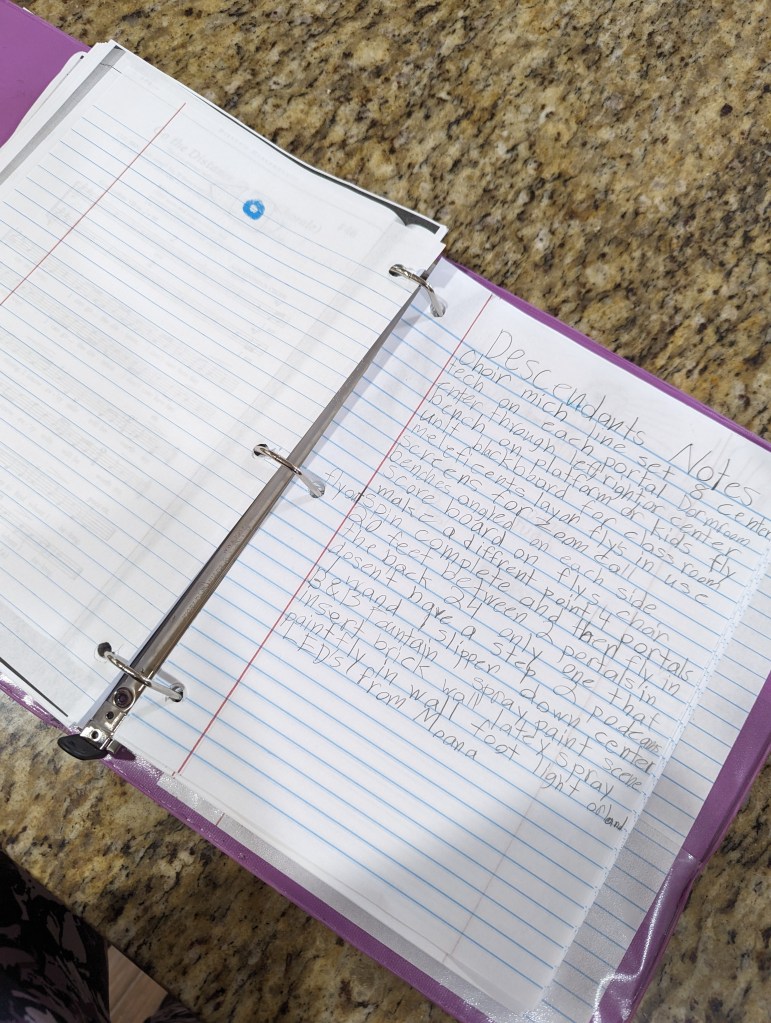 Descendants Notes
Chair mich line set 8 center
tech on each portal Dormroom
enter through leftrightor center
bench on platform or kids fly
unit buckboard for classroom
meleficents layor flys in use
screens for zoom call
benches angled on each side
score board on flys chair
make a diffrent point 4 portals
flyout spin complete and then fly in
20 feet between 2 portals in
the back 24 only one that
doesent have a step 2 podeans
1 wand 1 slipper down center
B&B fountain spray paint scene
insert brick wall latey spray
paint fly in wall foot light on and
LEDS from Moana